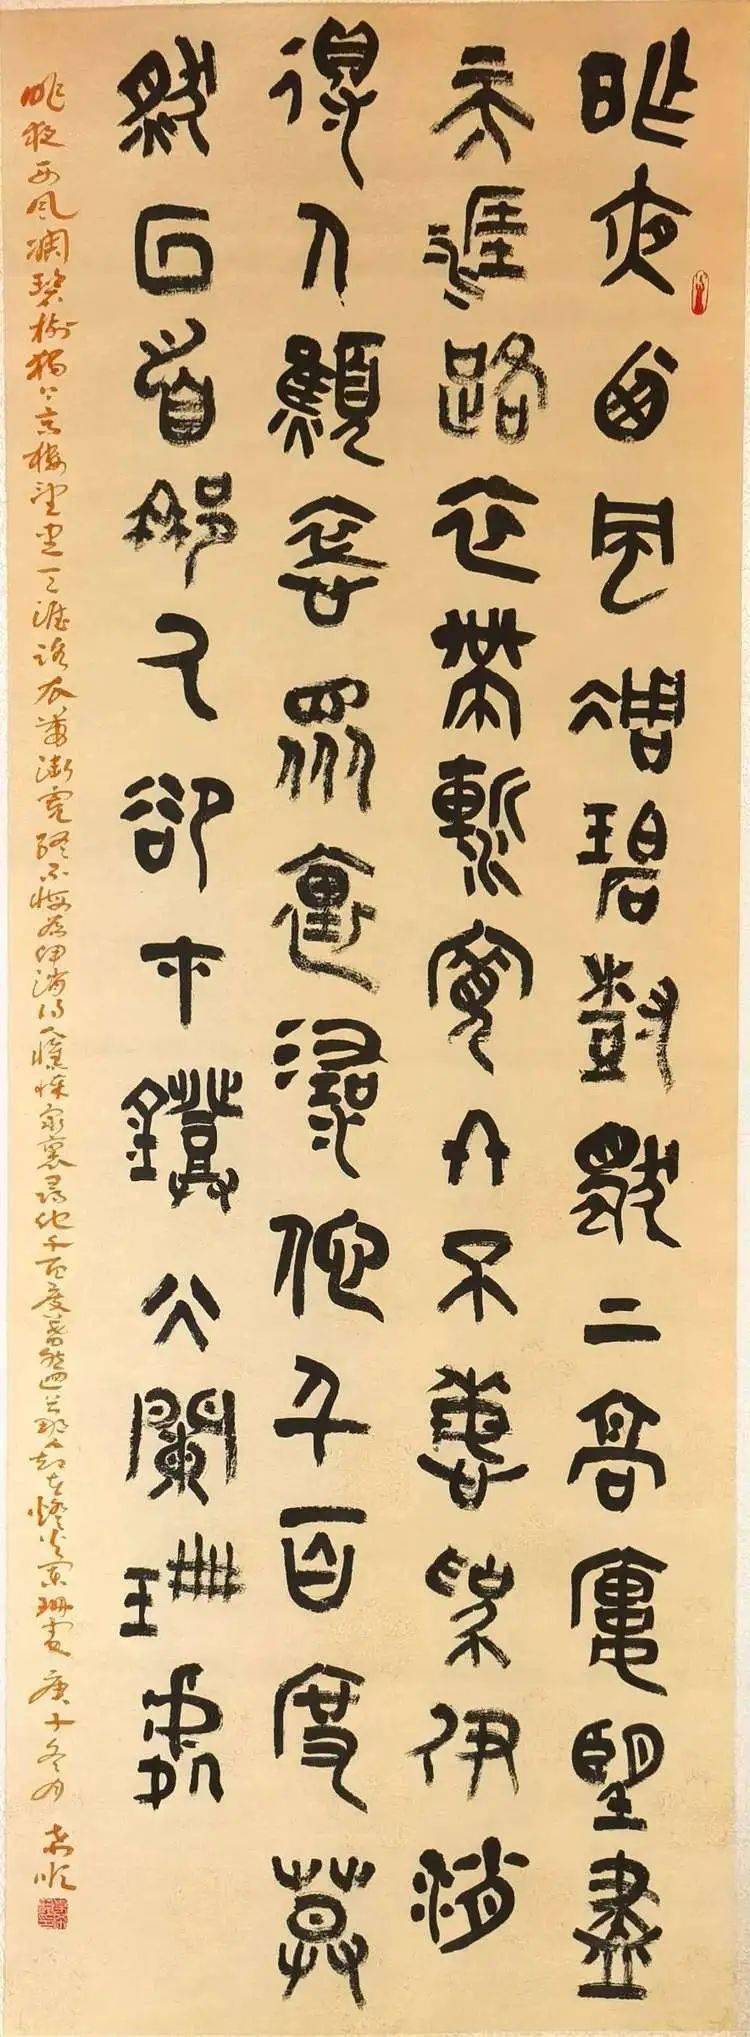 昨夜西風凋碧樹獨上高樓望盡
天涯路衣帶漸寬終不悔為伊消
得人憔悴眾裏尋他千百度驀
然回首那人卻在燈火闌珊處
昨夜西風凋碧樹獨上高樓望盡天涯路衣帶漸寬終不悔為伊消得人憔悴眾裏尋他千百度驀然回首那人卻在燈火闌珊處 庚子冬月 順